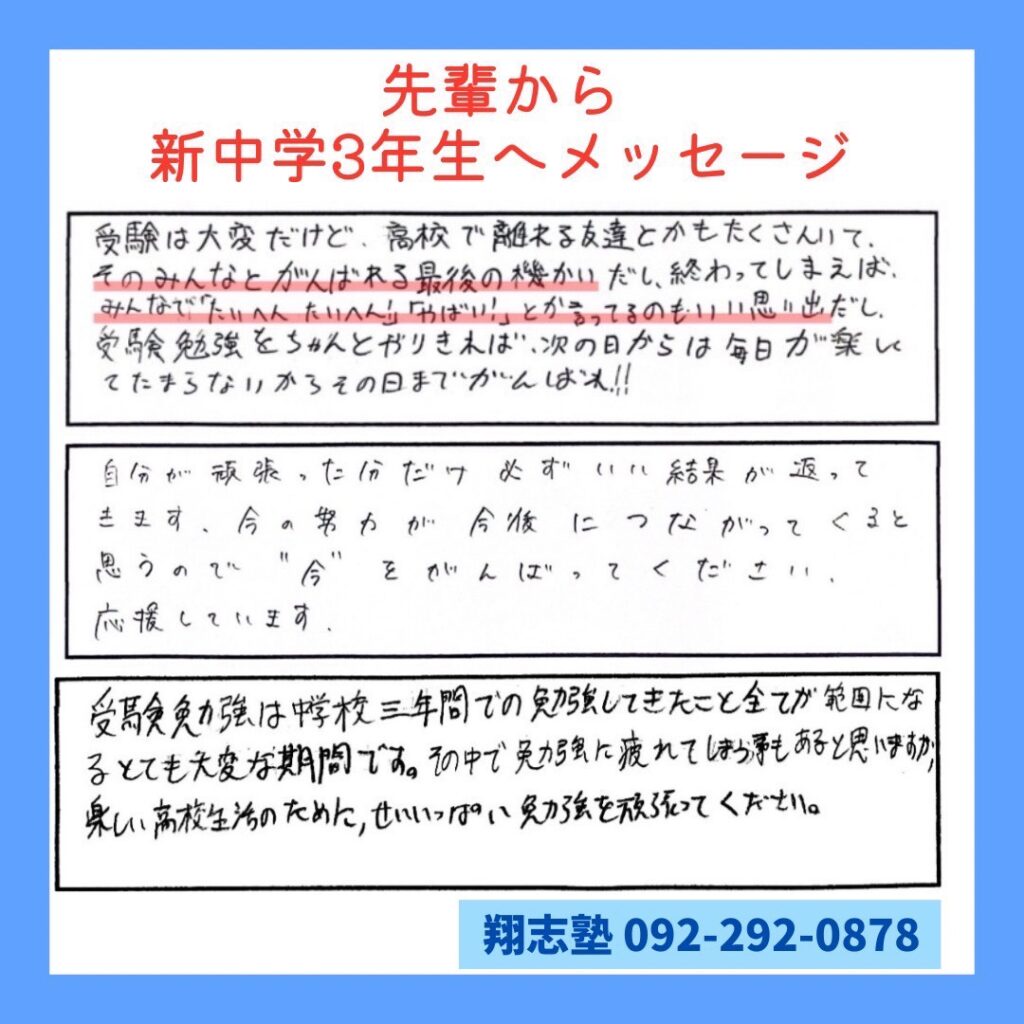 先輩から
新中学3年生へメッセージ
受験は大変だけど、高校で離れる友達とかもたくさんいて、
そのみんなとがんばれる最後の機かいだし、終わってしまえば、
みんなで「たいへんたいへん!」「やばい!」とか言ってるのもいい思い出だし、
受験勉強をちゃんとやりきれば、次の日からは毎日が楽しく
てたまらないからその日までがんばれ!!
自分が頑張った分だけ必ずいい結果が返って
きます、今の努力が今後につながってくると
思うので"今"をがんばってください、
応援しています、
受験勉強は中学校三年間での勉強してきたこと全てが範囲にな
るとても大変な期間です。その中で勉強に疲れてしまう事もあると思いますが,
楽しい高校生活のために,せいいっぱい勉強を頑張ってください。
翔志塾 092-292-0878